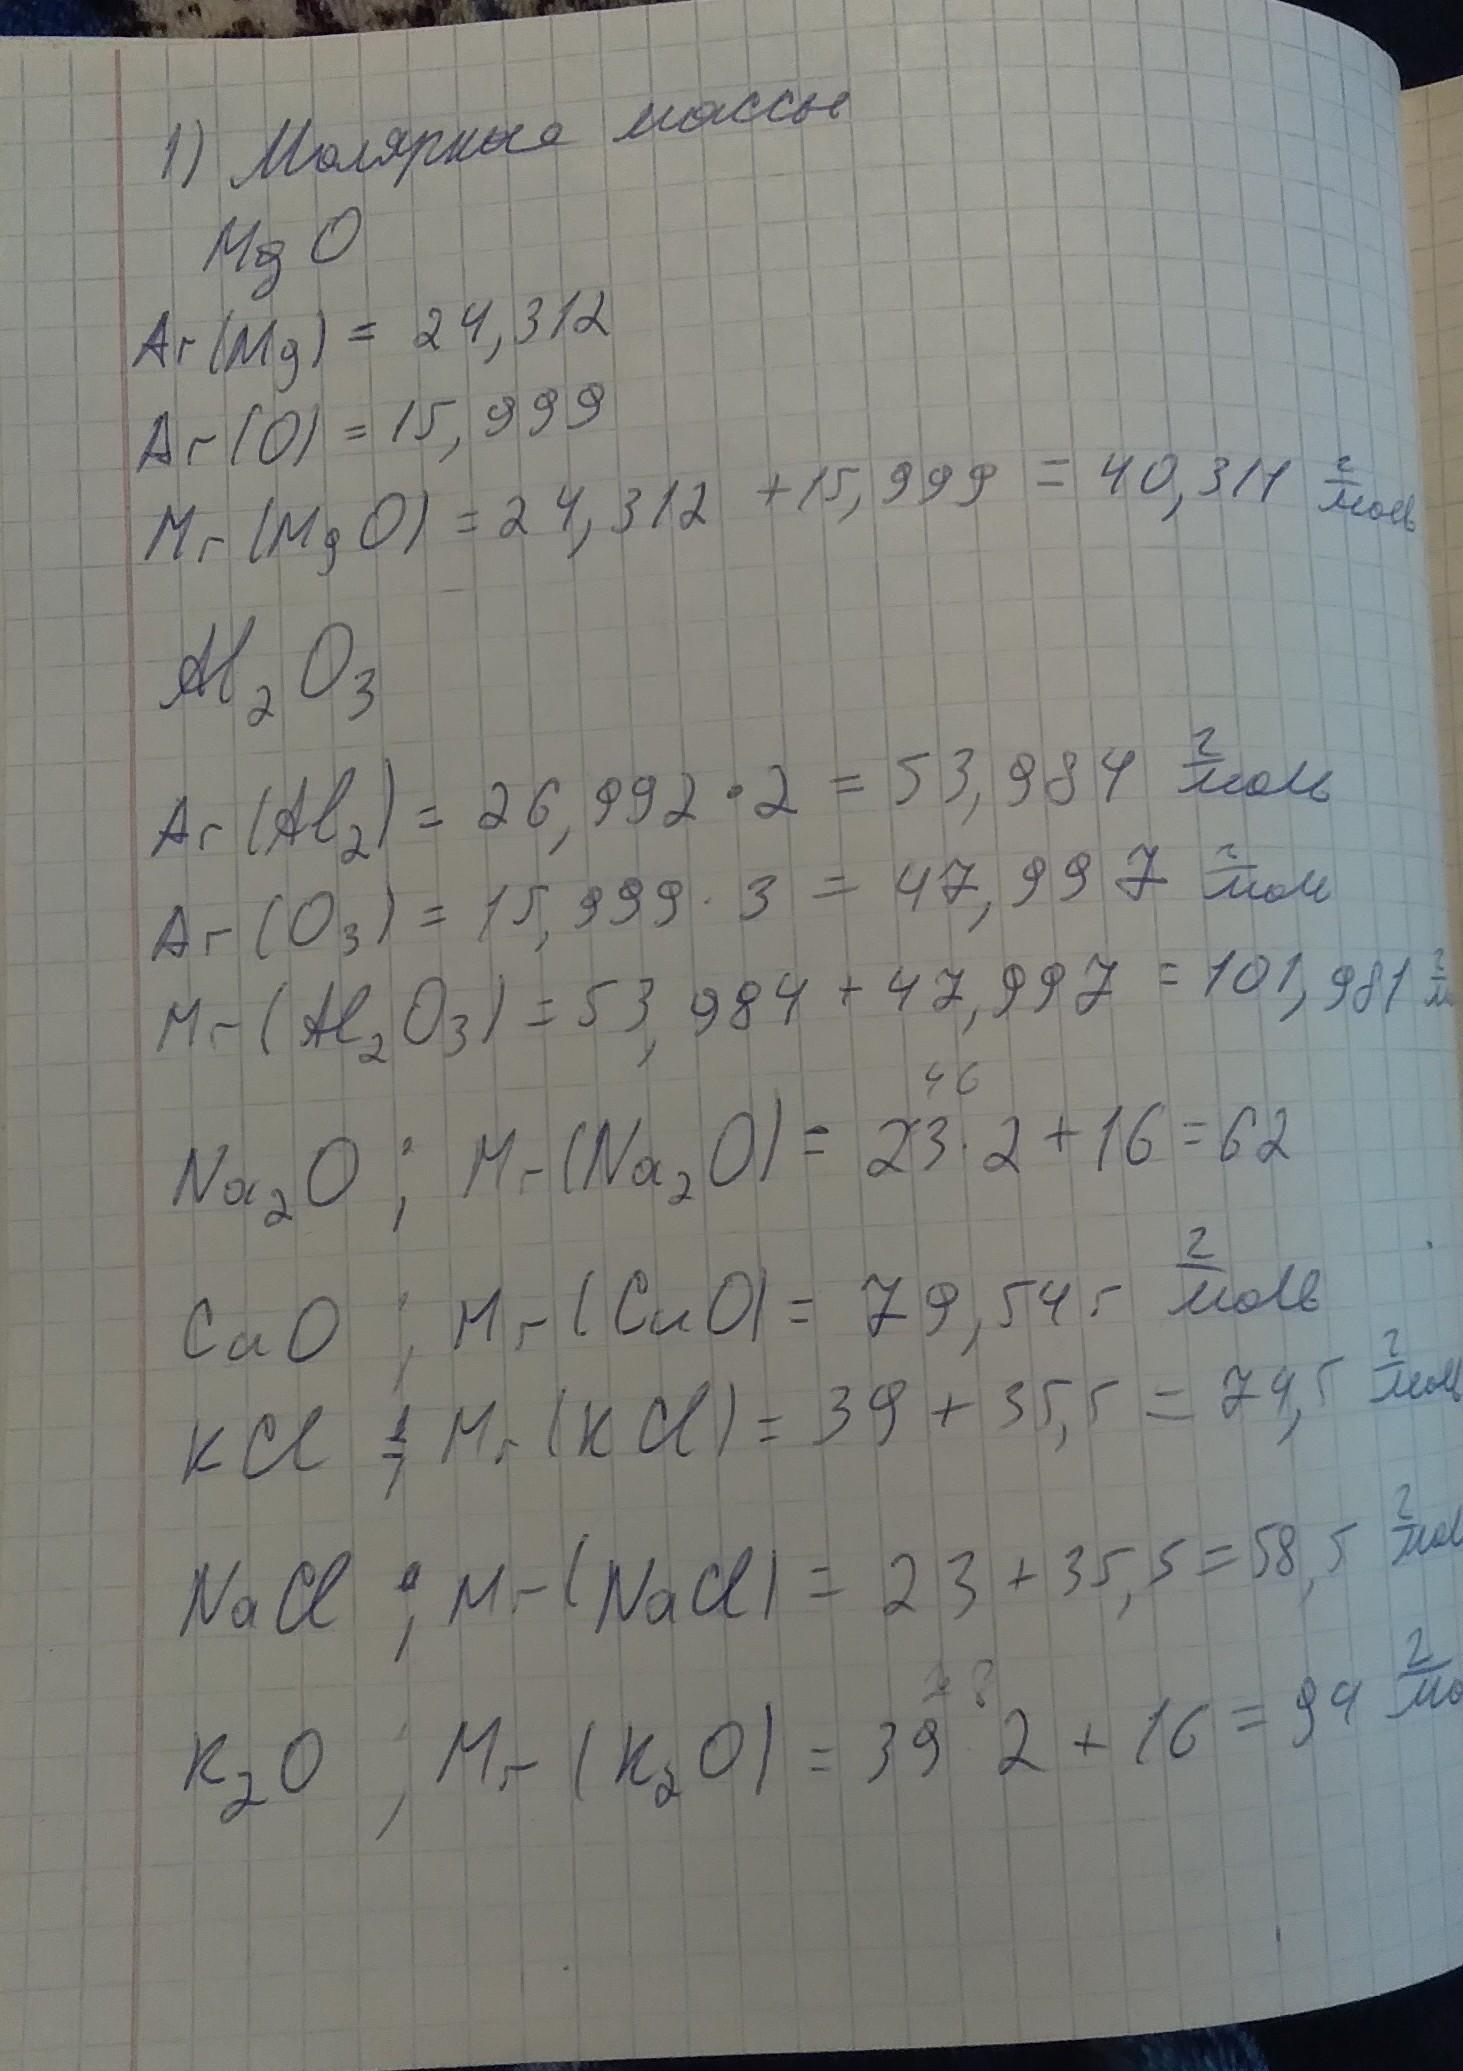 1) Молярные массы
MgO
Ar(Mg) = 24,312
Ar(O) = 15,999
Mr(MgO) = 24,312 + 15,999 = 40,311 г/моль
Al₂O₃
Ar(Al₂) = 26,992 · 2 = 53,984 г/моль
Ar(O₃) = 15,999 · 3 = 47,997 г/моль
Mr(Al₂O₃) = 53,984 + 47,997 = 101,981 г/м
46
Na₂O ; Mr(Na₂O) = 23 · 2 + 16 = 62
CuO ; Mr(CuO) = 79,545 г/моль
KCl ; Mr(KCl) = 39 + 35,5 = 74,5 г/моль
NaCl ; Mr(NaCl) = 23 + 35,5 = 58,5 г/мол
78
K₂O ; Mr(K₂O) = 39 · 2 + 16 = 94 г/мо